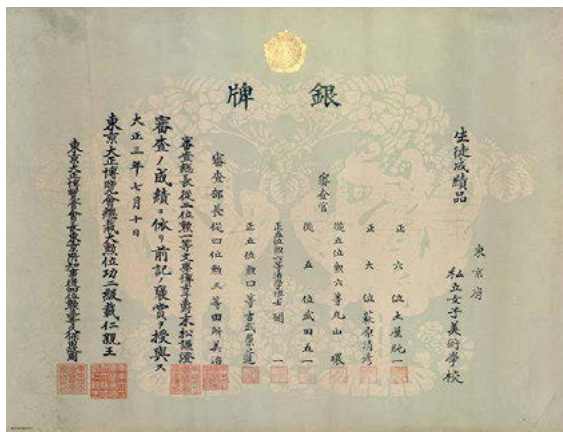 銀牌
生徒成績品
東京府
私立女子美術學校
正六位土屋純一
正六位萩原清彦
從五位勲六等丸山環
從五位武田五一
審査官
正五位勲六等法學博士關一
正五位勲四等
審査部長從四位勲三等田所美治
審査總長從二位勲一等文學博士子爵末松謙澄
審査ノ成績ニ依リ前記ノ褒賞ヲ授與ス
大正三年七月十日
東京大正博覽會總裁大勲位功二級載仁親王
東京大正博覽會會長東京府知事從四位勲三等久保田政周